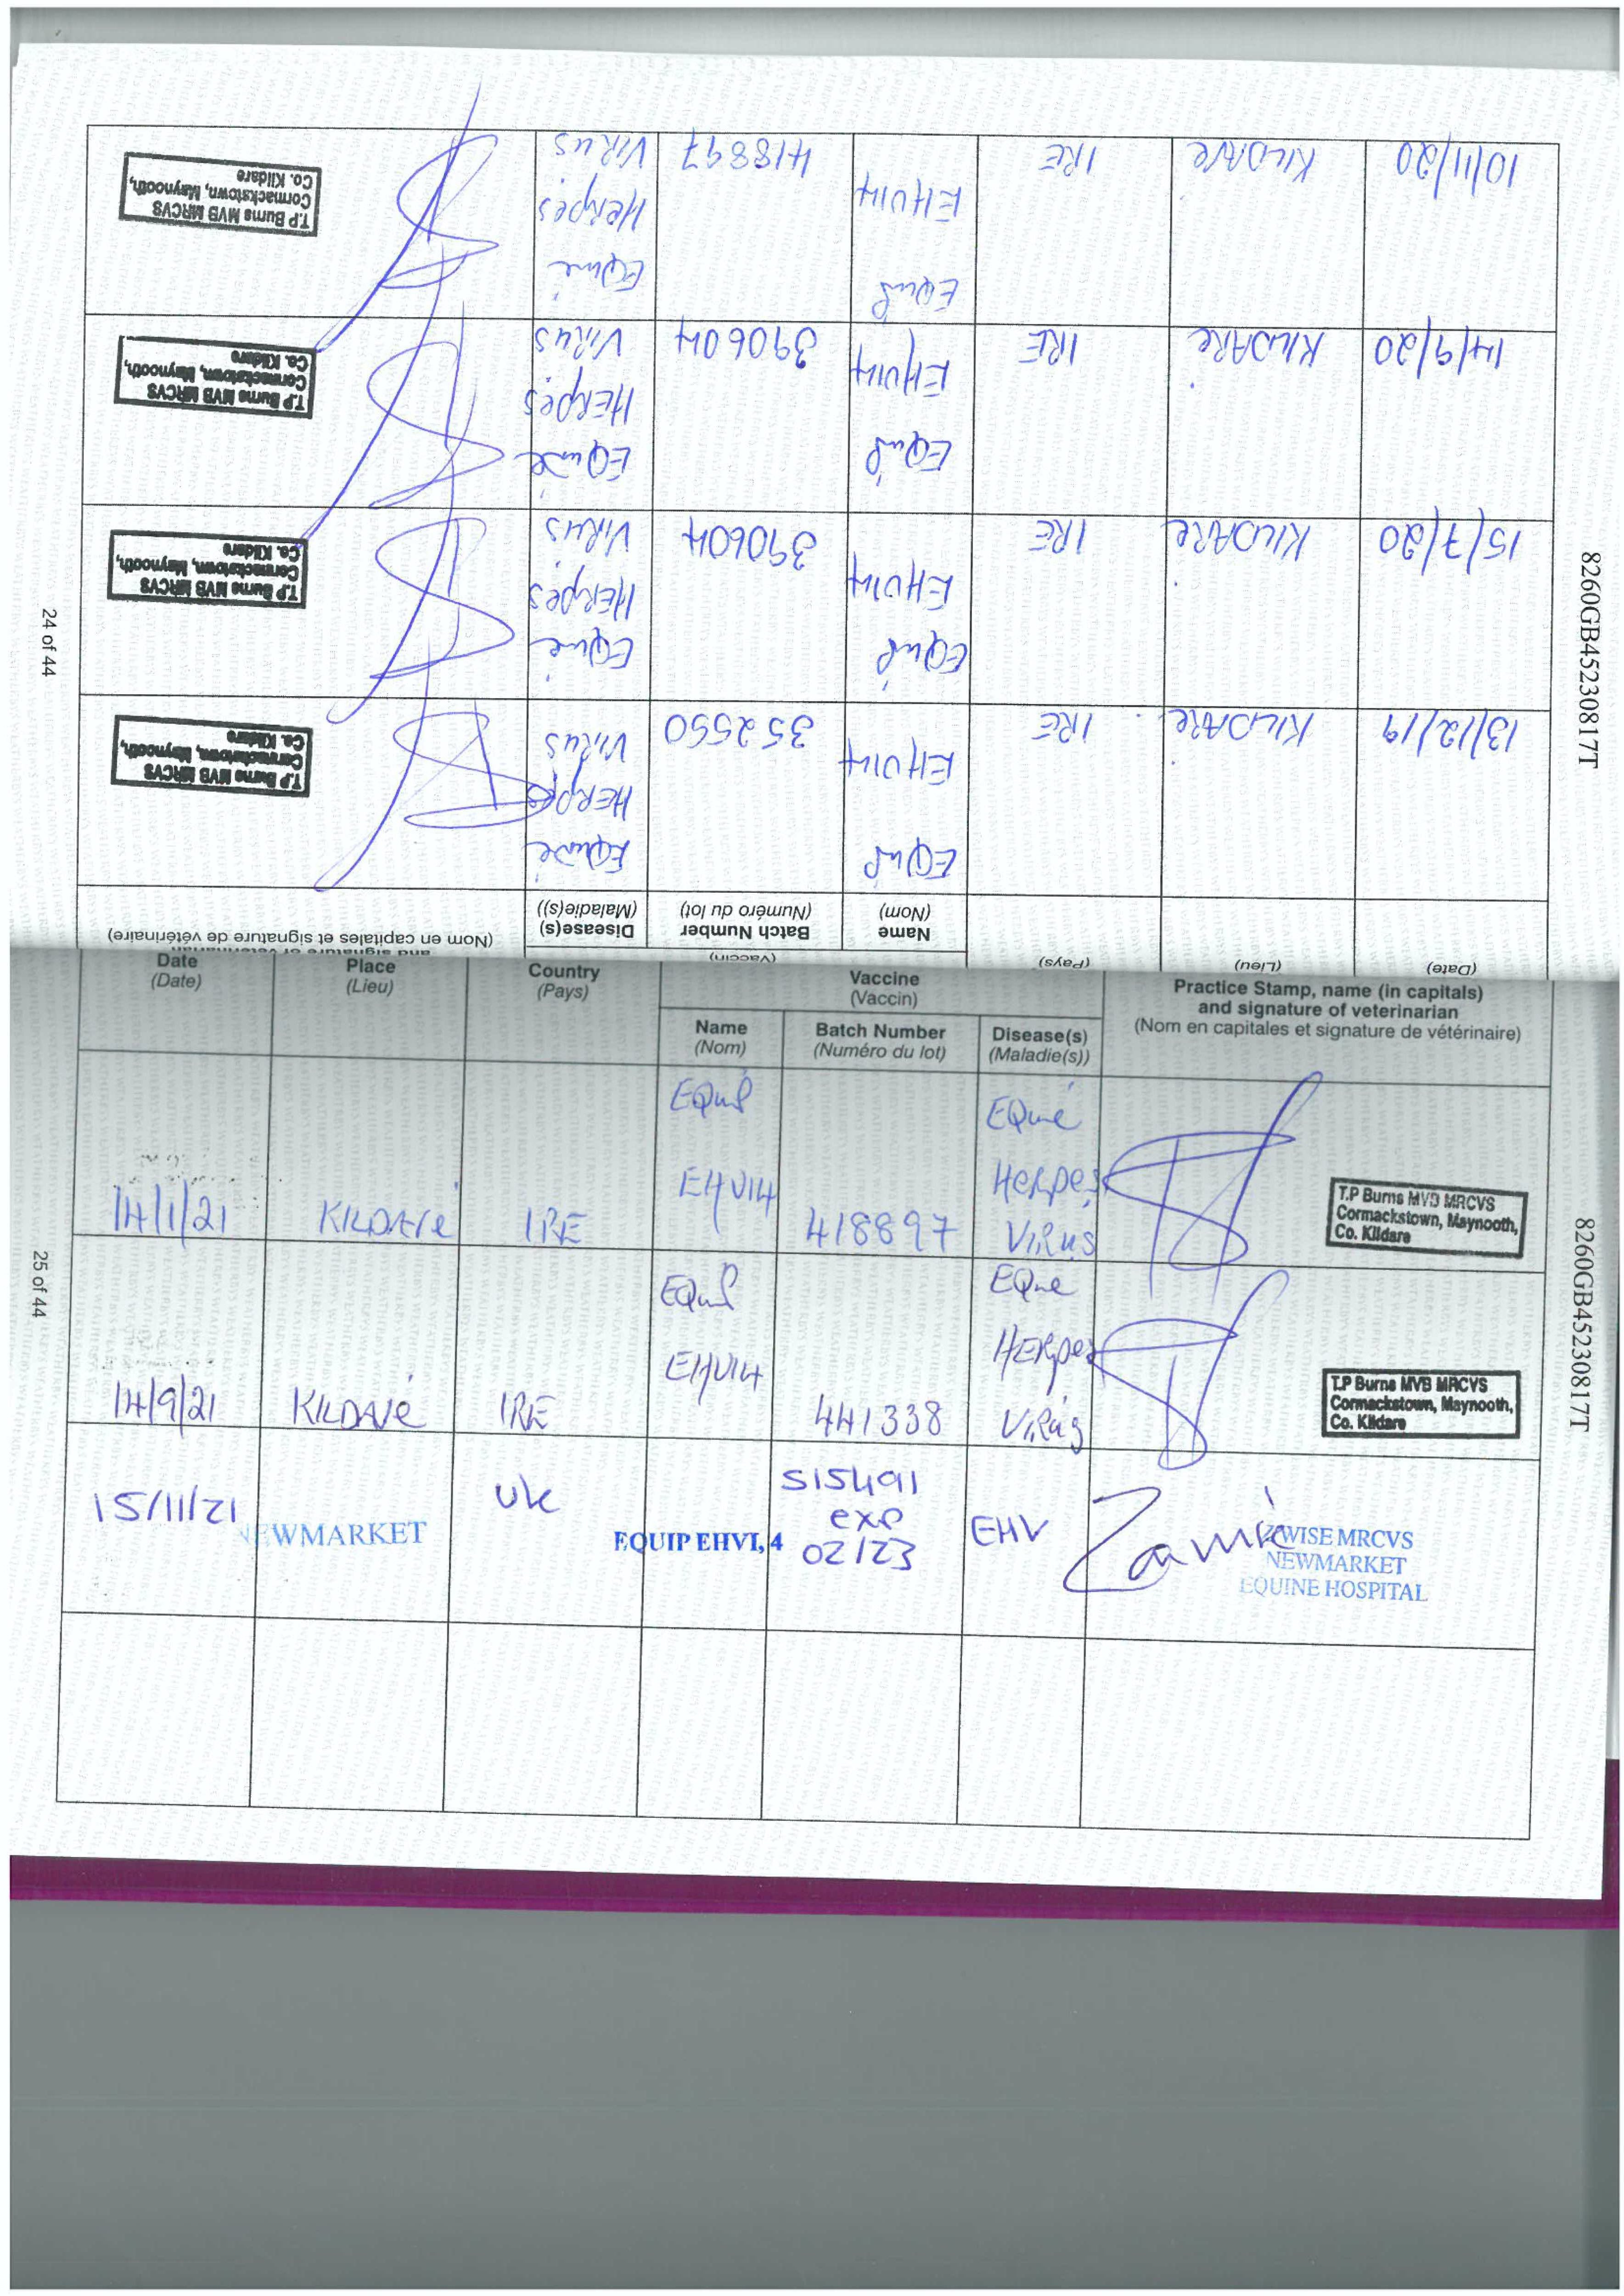 8260GB45230817T
24 of 44
(Date)
(Lieu)
(Pays)
(Vaccin)
Name
(Nom)
Batch Number
(Numéro du lot)
Disease(s)
(Maladie(s))
and signature of veterinarian
(Nom en capitales et signature de vétérinaire)
13/12/19
KILDARE
IRE
EQuip
EHV14
352550
EQuine
HERpes
VIRus
T.P Burns MVB MRCVS
Cormackstown, Maynooth,
Co. Kildare
15/7/20
KILDARE
IRE
EQuip
EHV14
390604
EQuine
HERpes
VIRus
T.P Burns MVB MRCVS
Cormackstown, Maynooth,
Co. Kildare
14/9/20
KILDARE
IRE
EQuip
EHV14
390604
EQuine
HERpes
VIRus
T.P Burns MVB MRCVS
Cormackstown, Maynooth,
Co. Kildare
10/11/20
KILDARE
IRE
EQuip
EHV14
418897
EQuine
HERpes
VIRus
T.P Burns MVB MRCVS
Cormackstown, Maynooth,
Co. Kildare
8260GB45230817T
25 of 44
Date
(Date)
Place
(Lieu)
Country
(Pays)
Vaccine
(Vaccin)
Name
(Nom)
Batch Number
(Numéro du lot)
Disease(s)
(Maladie(s))
Practice Stamp, name (in capitals)
and signature of veterinarian
(Nom en capitales et signature de vétérinaire)
14/1/21
KILDARE
IRE
EQuip
EHV14
418897
EQuine
Herpes
VIRus
T.P Burns MVB MRCVS
Cormackstown, Maynooth,
Co. Kildare
14/9/21
KILDARE
IRE
EQuip
EHV14
441338
EQuine
HERpes
VIRus
T.P Burns MVB MRCVS
Cormackstown, Maynooth,
Co. Kildare
15/11/21
NEWMARKET
UK
EQUIP EHVI, 4
515491
exp
02/23
EHV
Z WISE MRCVS
NEWMARKET
EQUINE HOSPITAL